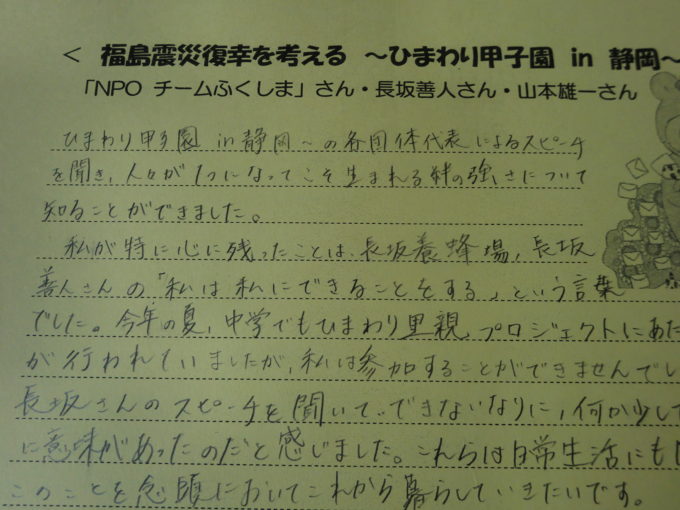 < 福島震災復幸を考える ～ひまわり甲子園 in 静岡～
「NPO チームふくしま」さん・長坂善人さん・山本雄一さん
ひまわり甲子園 in静岡～の各団体代表によるスピーチ
を聞き、人々が1つになってこそ生まれる絆の強さについて
知ることができました。
私が特に心に残ったことは、長坂養蜂場、長坂
善人さんの「私は私にできることをする」という言葉
でした。今年の夏、中学でもひまわり里親プロジェクトにあた
が行われていましたが、私は参加することができませんでし
長坂さんのスピーチを聞いて、できないなりに、何か少して
に意味があったのだと感じました。これらは日常生活にも
このことを念頭においてこれから暮らしていきたいです。